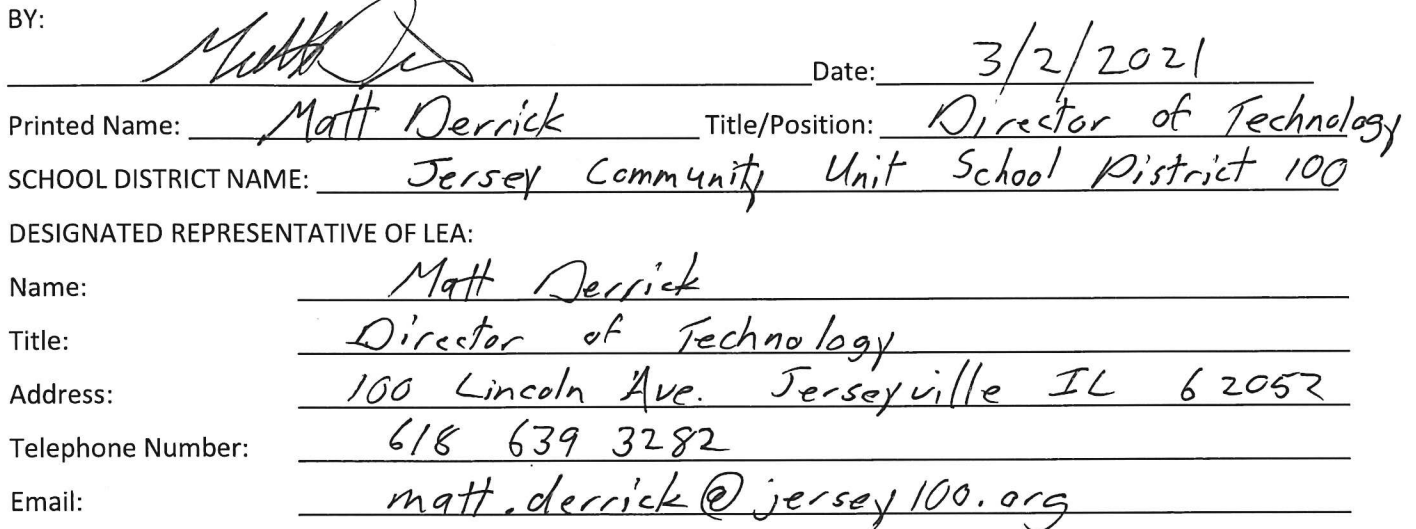 BY:
Date: 3/2/2021
Printed Name: Matt Derrick Title/Position: Director of Technology
SCHOOL DISTRICT NAME: Jersey Community Unit School District 100
DESIGNATED REPRESENTATIVE OF LEA:
Name: Matt Derrick
Title: Director of Technology
Address: 100 Lincoln Ave. Jerseyville IL 62052
Telephone Number: 618 639 3282
Email: matt.derrick@jersey100.org